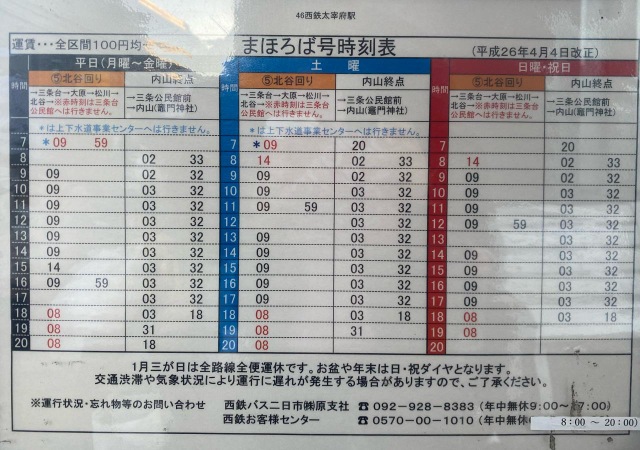 46西鉄太宰府駅
運賃・・・全区間100円均一
まほろば号時刻表
(平成26年4月4日改正)
平日(月曜～金曜) 土曜 日曜・祝日
時間 ⑤北谷回り 内山終点 時間 ⑤北谷回り 内山終点 時間 ⑤北谷回り 内山終点
→三条台→大原→松川→北谷→※赤時刻は三条台公民館へは行きません。 →三条公民館前→内山(竈門神社) →三条台→大原→松川→北谷→※赤時刻は三条台公民館へは行きません。 →三条公民館前→内山(竈門神社) →三条台→大原→松川→北谷→※赤時刻は三条台公民館へは行きません。 →三条公民館前→内山(竈門神社)
*は上下水道事業センターへは行きません。 *は上下水道事業センターへは行きません。
7 *09 59 7 *09 20 7 20
8 02 33 8 14 02 33 8 14 02 33
9 09 02 32 9 09 02 32 9 09 02 32
10 09 03 32 10 09 03 32 10 09 03 32
11 09 03 32 11 09 59 03 32 11 09 03 32
12 09 03 32 12 03 32 12 09 59 03 32
13 09 03 32 13 09 03 32 13 03 32
14 09 03 32 14 09 03 32 14 09 03 32
15 14 03 32 15 09 03 32 15 09 03 32
16 09 59 03 32 16 09 03 32 16 09 03 32
17 03 32 17 09 03 32 17 09 03 32
18 08 03 18 18 08 03 18 18 08 03 18
19 08 31 19 08 31 19 08
20 08 18 20 08 20
1月三が日は全路線全便運休です。お盆や年末は日・祝ダイヤとなります。
交通渋滞や気象状況により運行に遅れが発生する場合がありますので、ご了承ください。
※運行状況・忘れ物等のお問い合わせ 西鉄バス二日市㈱原支社 ☎092-928-8383 (年中無休9:00～17:00)
西鉄お客様センター ☎0570-00-1010 (年中無休
8:00 ～ 20:00)